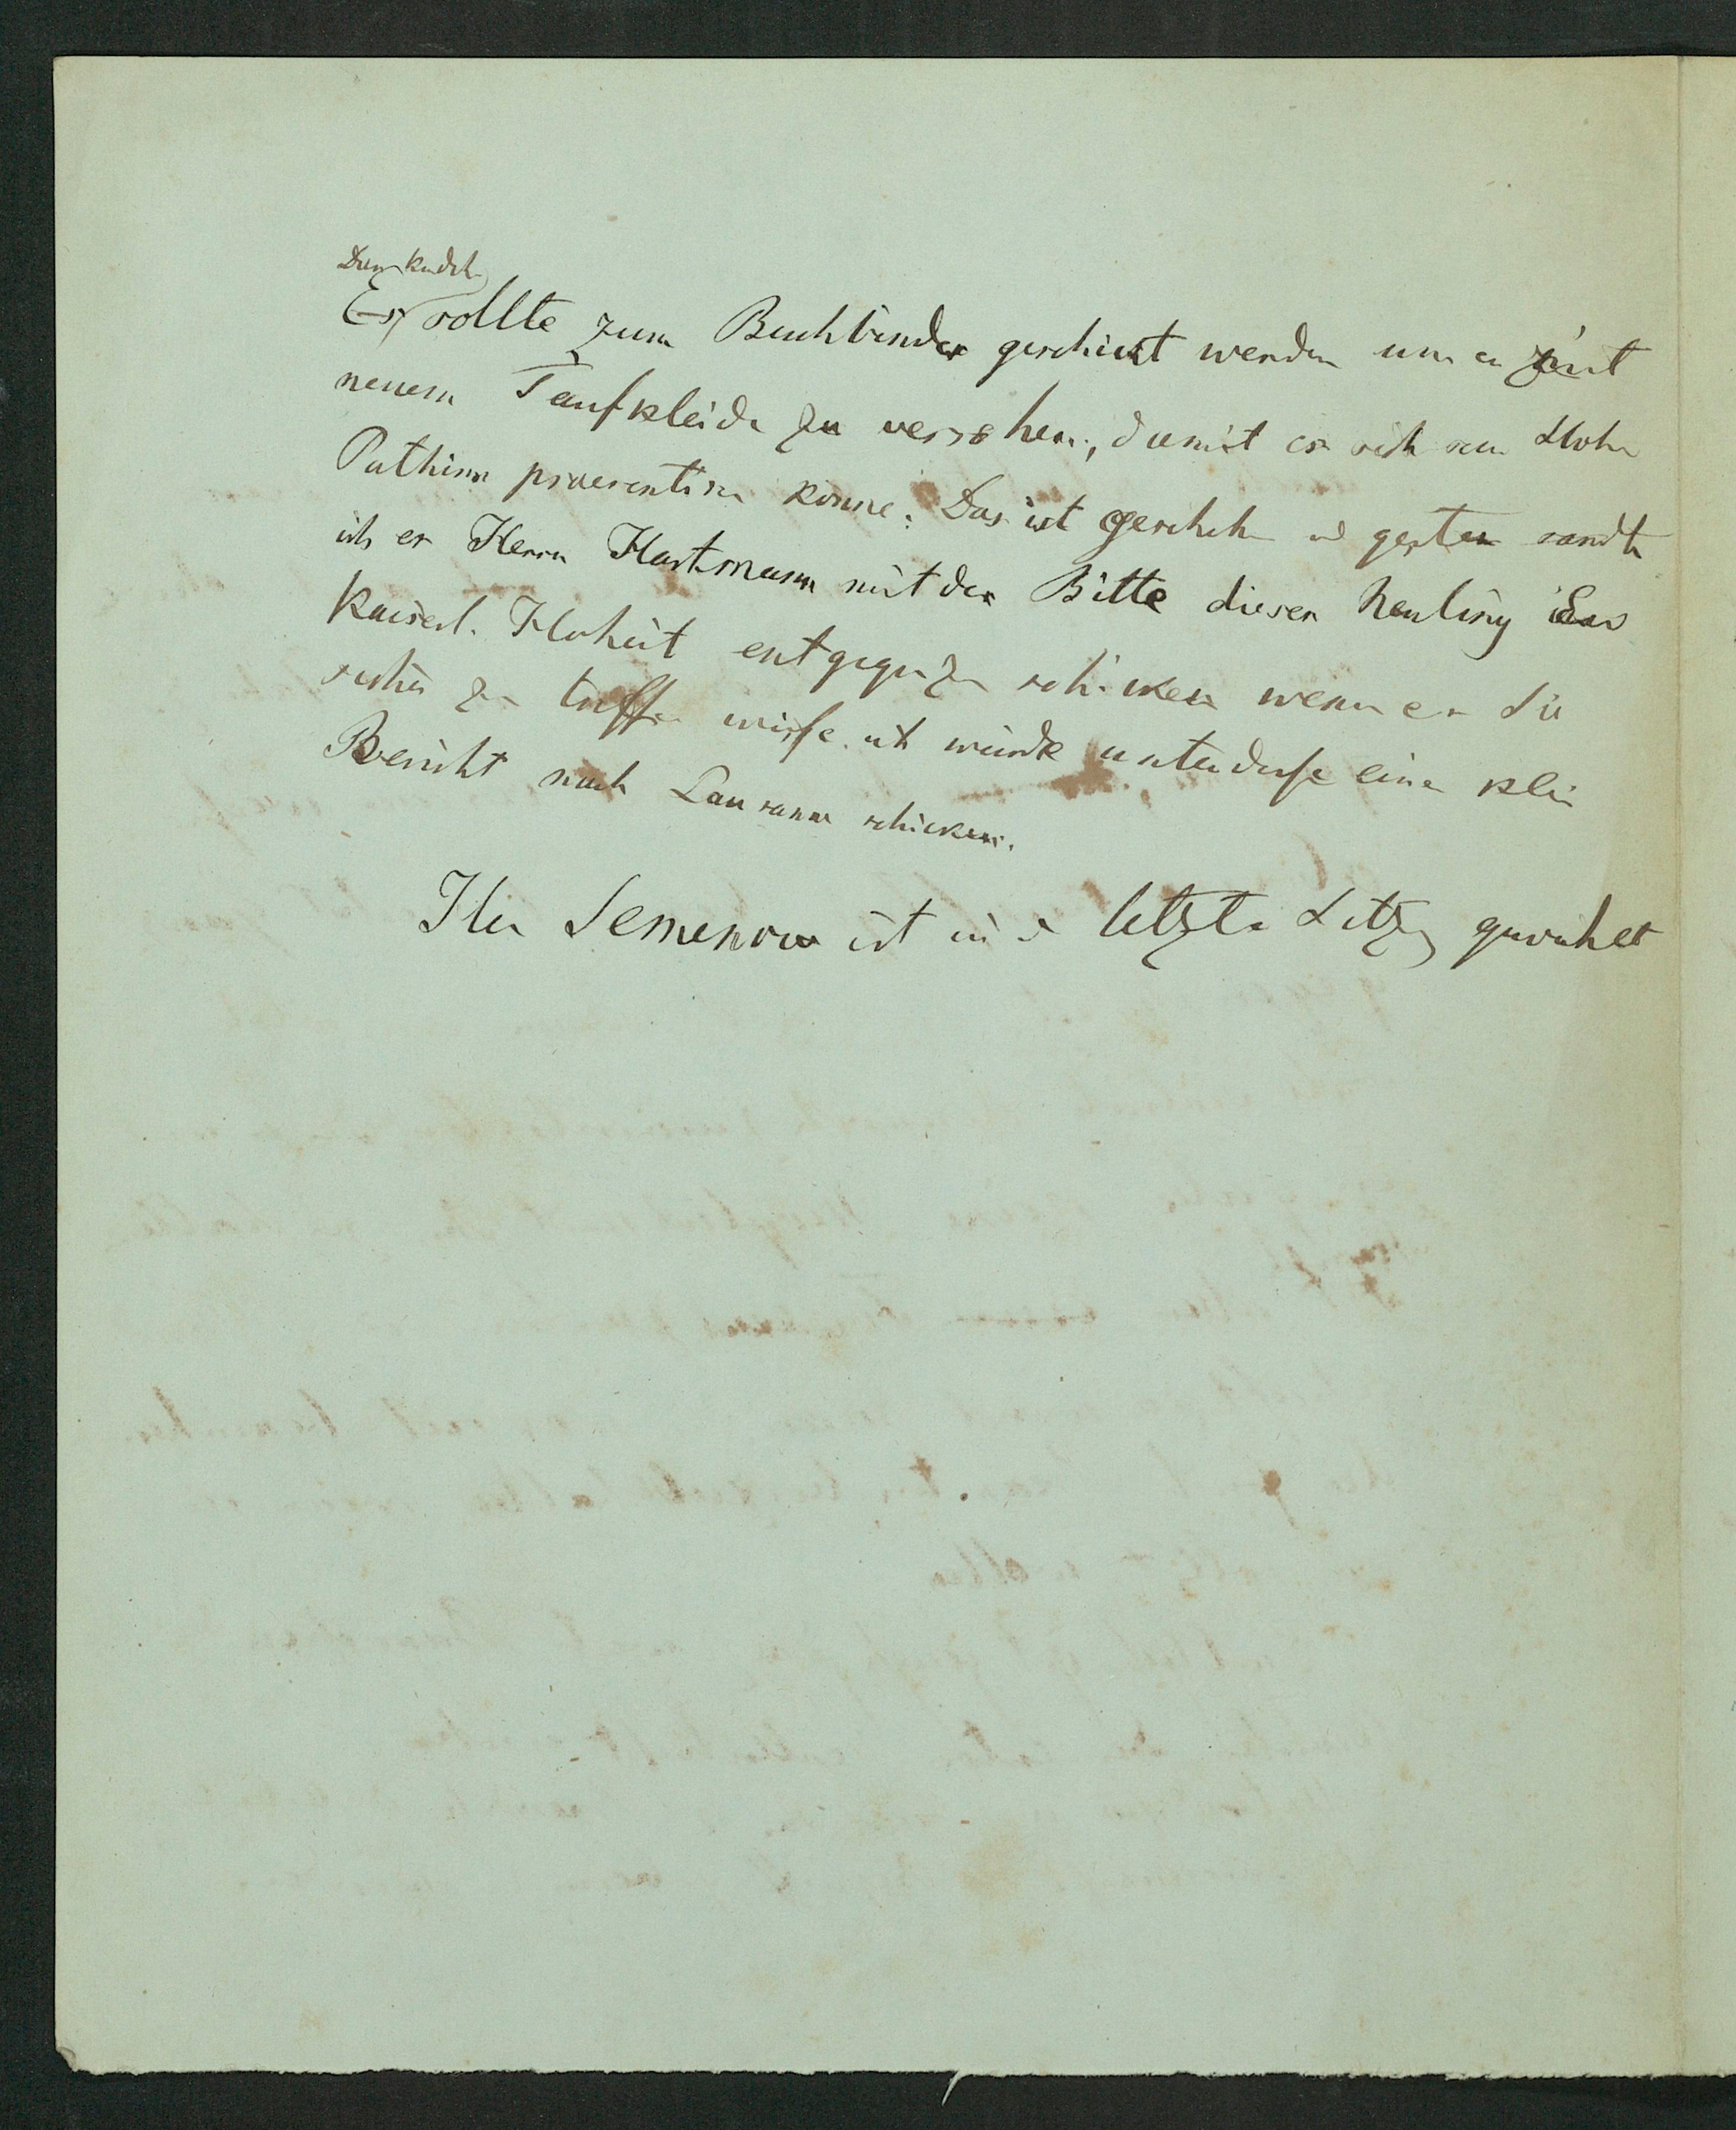 Das Kindch
Es sollte zum Buchbinder geschickt werden um es mit
neuem Taufkleide zu versehen, damit es sich sein Hohen
Pathinn praesentiren könne. Das ist gescheh u gestern sandte
ich es Herrn Hartmann mit der Bitte diesen Neuling Ew
Kaiserl. Hoheit entgegen zu schicken wenn er Sie
sicher zu treffen wisse. ich würde unterdesse einen klein
Bericht nach Lausanne schicken.
Hr Semenow ist in d letzten Sitzg gewählt